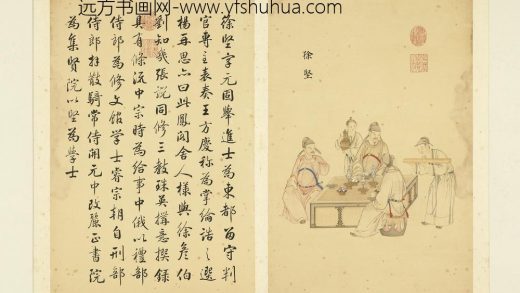 远方书画网-www.yfshuhua.com
徐堅
徐堅字元固舉進士為東都留守判
官專主表奏王方慶称為掌綸誥之選
楊再思亦曰此鳳閣舍人樣與徐彥伯
劉知幾張說同修三教珠英構意撰錄
具有條流中宗時為給事中俄以禮部
侍郎為修文館学士睿宗朝自刑部
侍郎拜散騎常侍開元中改麗正書院
為集賢院以堅為學士